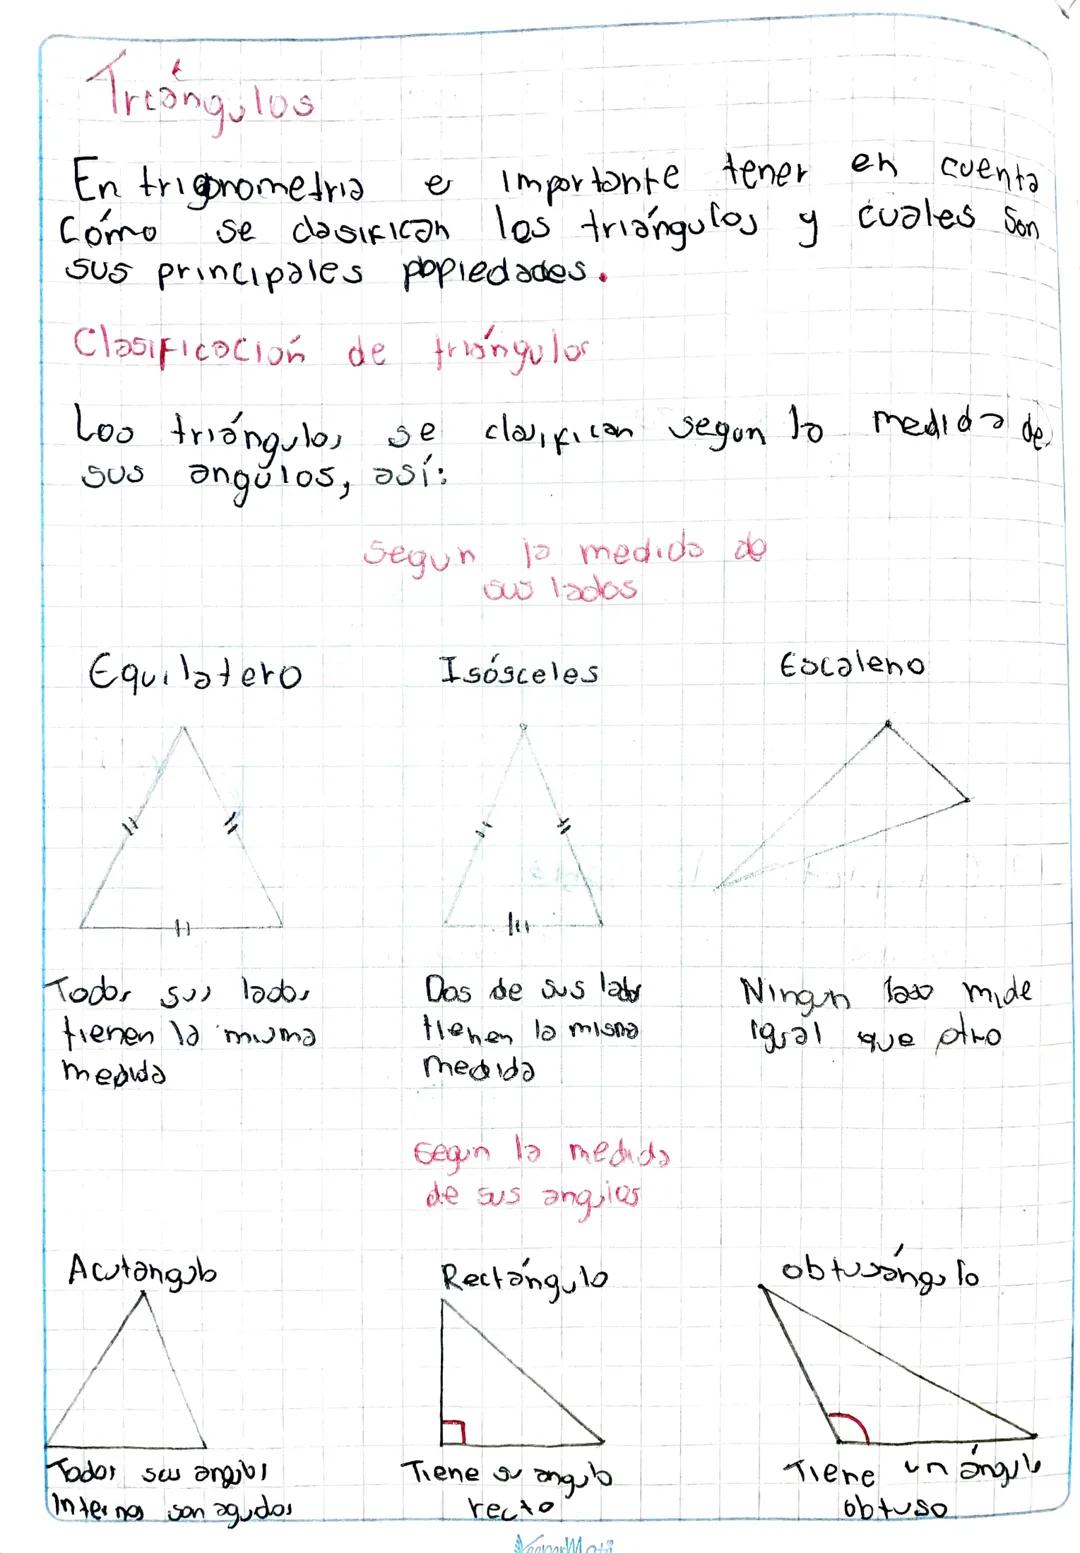 Triángulos
En trigonometria e importante tener en cuenta
Cómo se clasifican los triángulos y cuales son
sus principales popiedades.
Clasificación de triángulos
Los triángulos se clasifican segun la medida de
sus angúlos, así:
Segun la medida de
sus lados
Equilatero Isósceles Escaleno
Todos sus lados Dos de sus lados Ningun lado mide
tienen la misma tienen la misma igual que otro
medida medida
Segun la medida
de sus angulos
Acutangulo Rectángulo obtusángulo
Todos sus angulos Tiene su angulo Tiene un ángulo
Internos son agudos recto obtuso